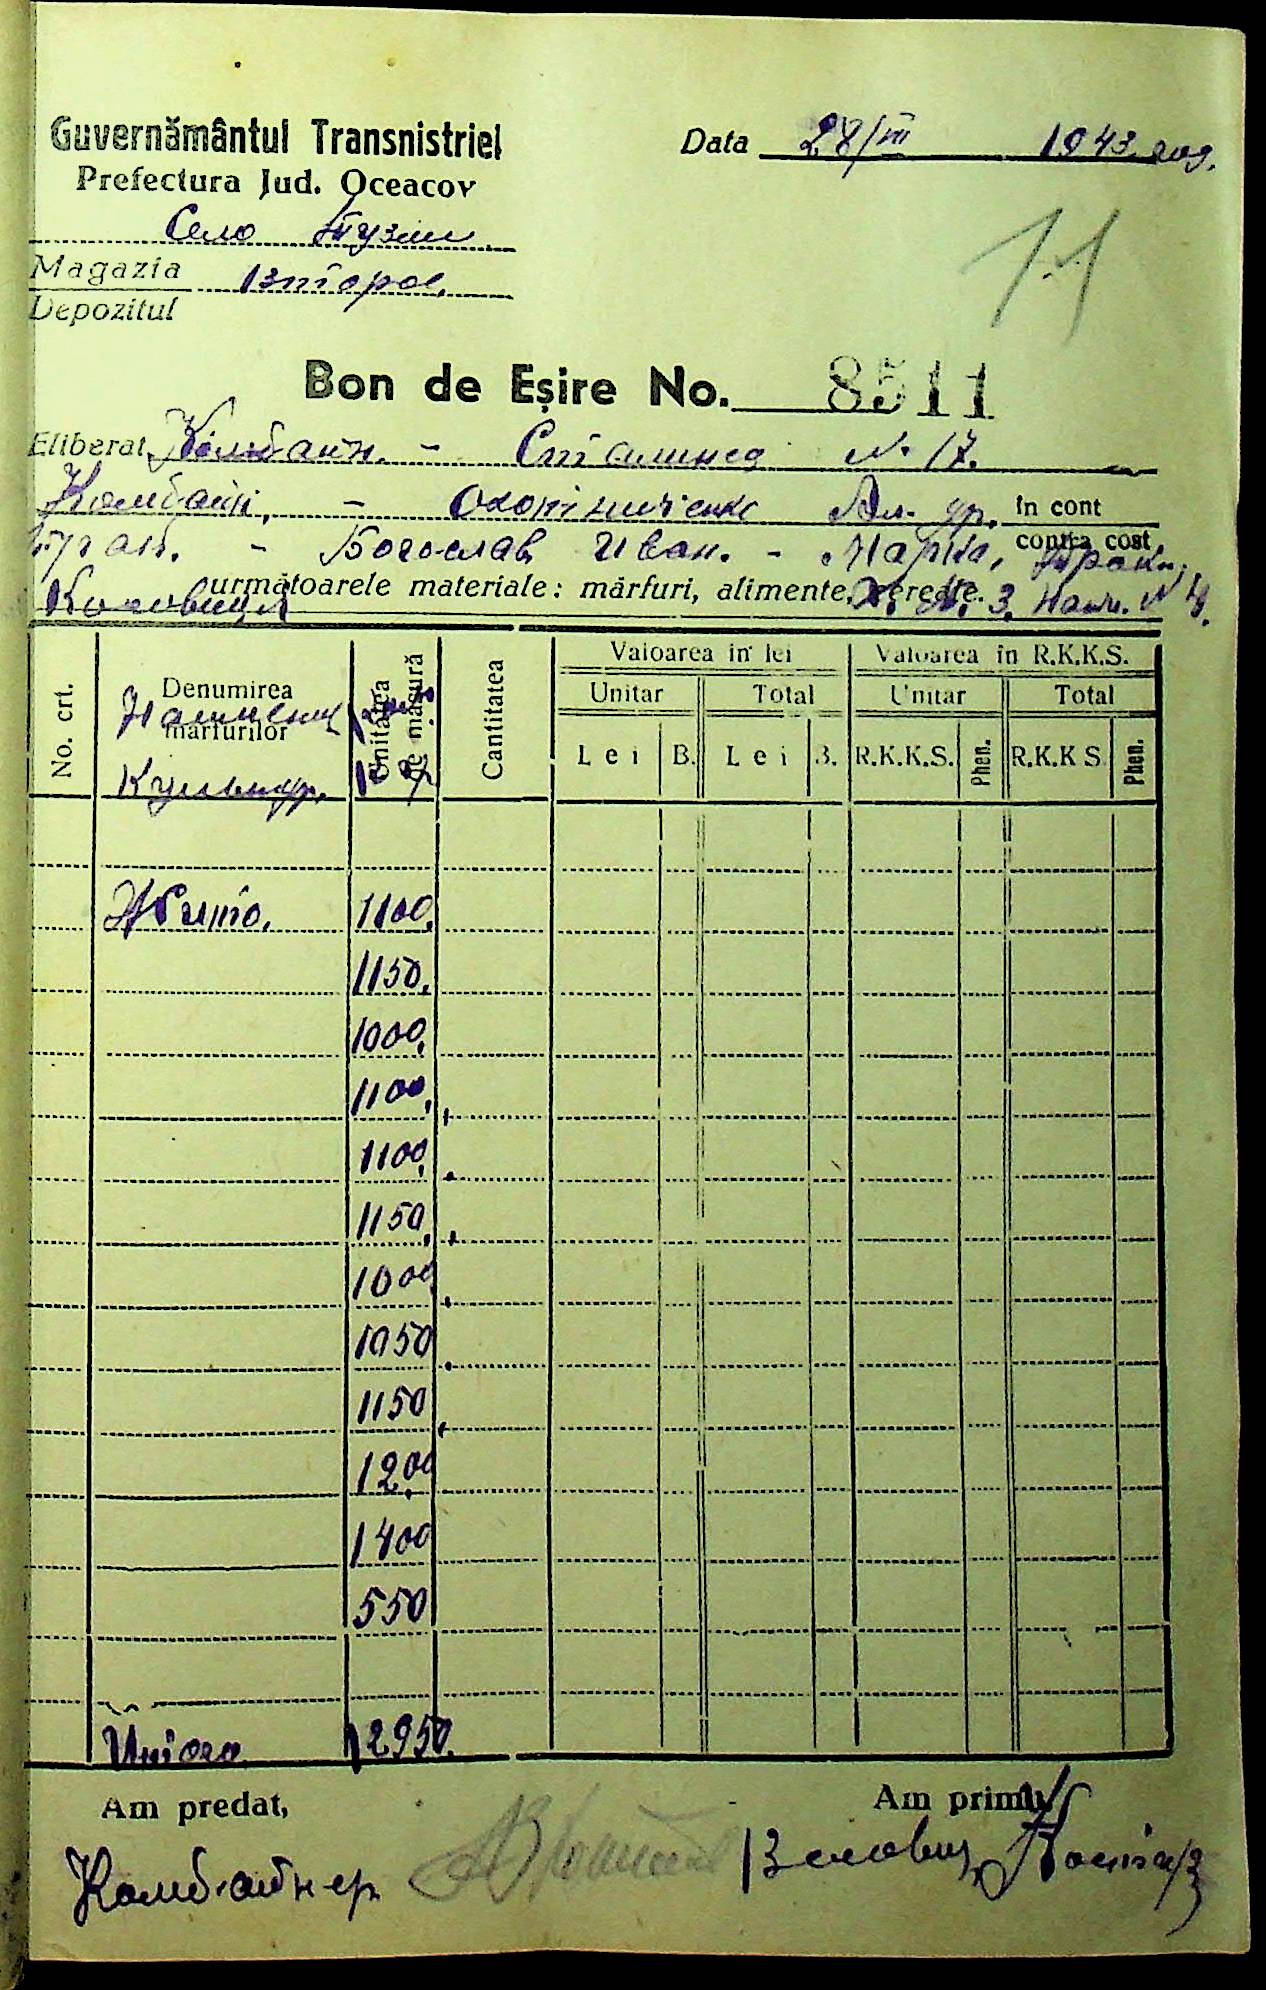 Guvernământul Transnistriei
Data 28/VII 1943 год.
Prefectura Jud. Oceacov
Село Тузли
Magazia
Depozitul второе
11
Bon de Eşire No. 8511
Eliberat Комбайн. - Сталинец № 17.
Комбайн, - Ал. гр. în cont
- Богослав Иван. - Марка, Тракт. contra cost
următoarele materiale: mărfuri, alimente, cereale. № 3. Нати № 4.
No. crt.
Denumirea mărfurilor
Unitatea de măsură
Cantitatea
Valoarea în lei
Valoarea în R.K.K.S.
Unitar
Total
Unitar
Total
Lei
B.
Lei
B.
R.K.K.S.
Phen.
R.K.K.S.
Phen.
Культур.
Жито. 1100.
1150.
1000.
1100.
1100.
1150.
1000.
1050
1150
1200
1400
550
Итого 12950.
Am predat,
Am primit,
Комбайнер